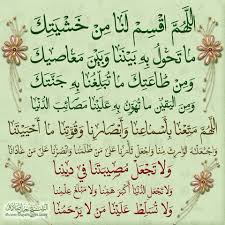 اللَّهُمَّ اقْسِمْ لَنَا مِنْ خَشْيَتِكَ
مَا تَحُولُ بِهِ بَيْنَنَا وَبَيْنَ مَعَاصِيكَ
وَمِنْ طَاعَتِكَ مَا تُبَلِّغُنَا بِهِ جَنَّتَكَ
وَمِنَ الْيَقِينِ مَا تُهَوِّنُ بِهِ عَلَيْنَا مَصَائِبَ الدُّنْيَا
اللَّهُمَّ مَتِّعْنَا بِأَسْمَاعِنَا وَأَبْصَارِنَا وَقُوَّتِنَا مَا أَحْيَيْتَنَا
وَاجْعَلْهُ الْوَارِثَ مِنَّا وَاجْعَلْ ثَأْرَنَا عَلَى مَنْ ظَلَمَنَا وَانْصُرْنَا عَلَى مَنْ عَادَانَا
وَلَا تَجْعَلْ مُصِيبَتَنَا فِي دِينِنَا
وَلَا تَجْعَلِ الدُّنْيَا أَكْبَرَ هَمِّنَا وَلَا مَبْلَغَ عِلْمِنَا
وَلَا تُسَلِّطْ عَلَيْنَا مَنْ لَا يَرْحَمُنَا